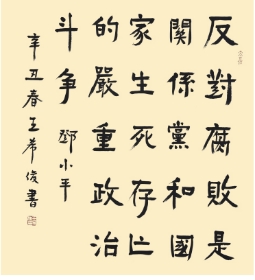 反對腐敗是
關係黨和國
家生死存亡
的嚴重政治
斗争 鄧小平
辛丑春王希俊書